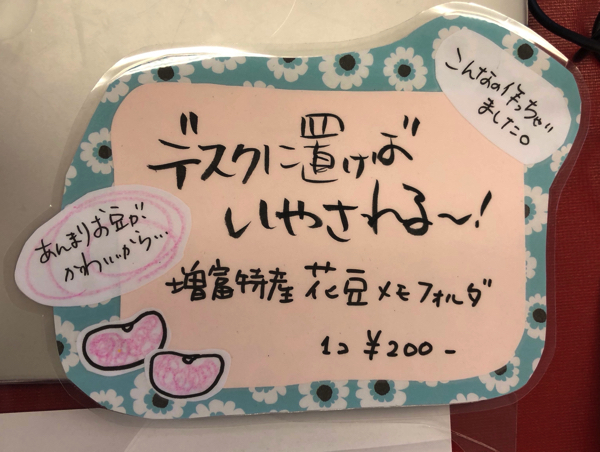 こんなの作っちゃい
ました。
デスクに置けば
いやされる〜!
あんまりお豆が
かわいいから…
増富特産 花豆メモフォルダ
1コ ¥200-